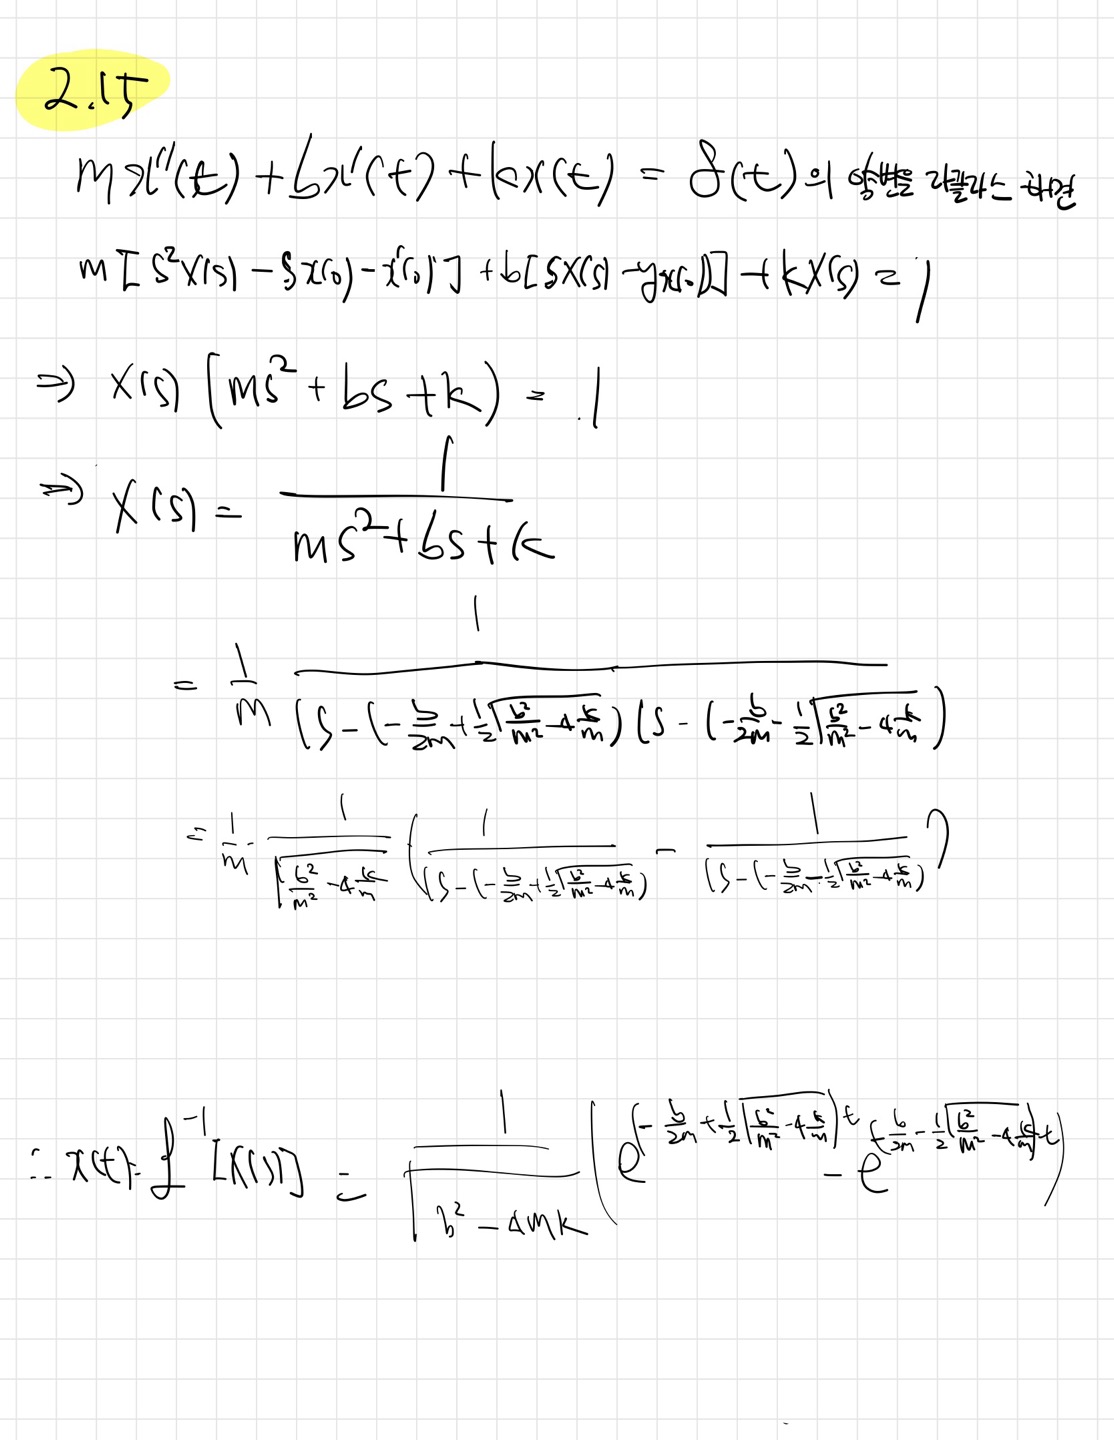 2.15
mx''(t) + bx'(t) + kx(t) = δ(t)의 양변을 라플라스 하면
m[s²X(s) - sx(0) - x'(0)] + b[sX(s) - yx(0)] + kX(s) = 1
⇒ X(s) (ms² + bs + k) = 1
⇒ X(s) = 1 / (ms² + bs + k)
= 1/m 1 / (s - (-b/2m + 1/2 √(b²/m² - 4k/m)) (s - (-b/2m - 1/2 √(b²/m² - 4k/m))
= 1/m · 1/√(b²/m² - 4k/m) (1 / (s - (-b/2m + 1/2 √(b²/m² - 4k/m)) - 1 / (s - (-b/2m - 1/2 √(b²/m² - 4k/m)))
∴ x(t) = ℒ⁻¹[X(s)] = 1/√(b² - 4mk) (e^(-b/2m + 1/2 √(b²/m² - 4k/m))t - e^(-b/2m - 1/2 √(b²/m² - 4k/m))t)